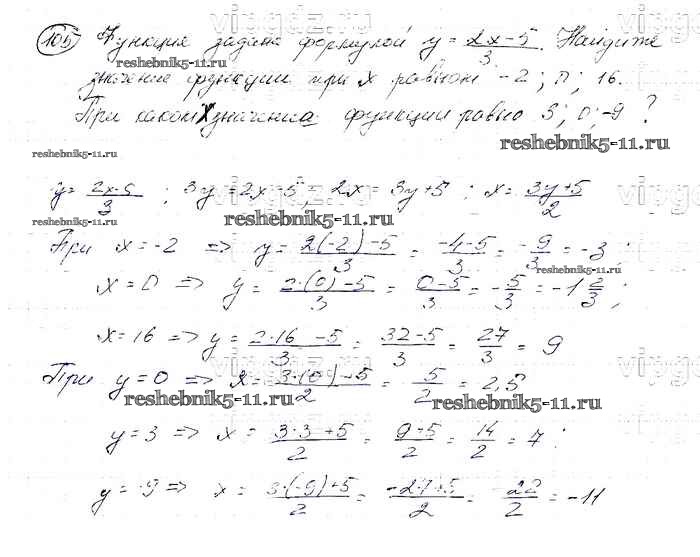 105 Функция задана формулой y = (2x-5)/3. Найдите
reshebnik5-11.ru
значение функции при x равном -2; 0; 16.
При каком x значение функции равно 3; 0; -9 ?
reshebnik5-11.ru
reshebnik5-11.ru
y = (2x-5)/3 ; 3y = 2x-5 ; 2x = 3y+5 ; x = (3y+5)/2
reshebnik5-11.ru
reshebnik5-11.ru
При x = -2 => y = (2(-2)-5)/3 = (-4-5)/3 = -9/3 = -3 ;
reshebnik5-11.ru
x = 0 => y = (2·(0)-5)/3 = (0-5)/3 = -5/3 = -1 2/3 ;
x = 16 => y = (2·16-5)/3 = (32-5)/3 = 27/3 = 9
При y = 0 => x = (3·(0)+5)/2 = 5/2 = 2,5
reshebnik5-11.ru
reshebnik5-11.ru
y = 3 => x = (3·3+5)/2 = (9+5)/2 = 14/2 = 7 ;
y = -9 => x = (3·(-9)+5)/2 = (-27+5)/2 = -22/2 = -11